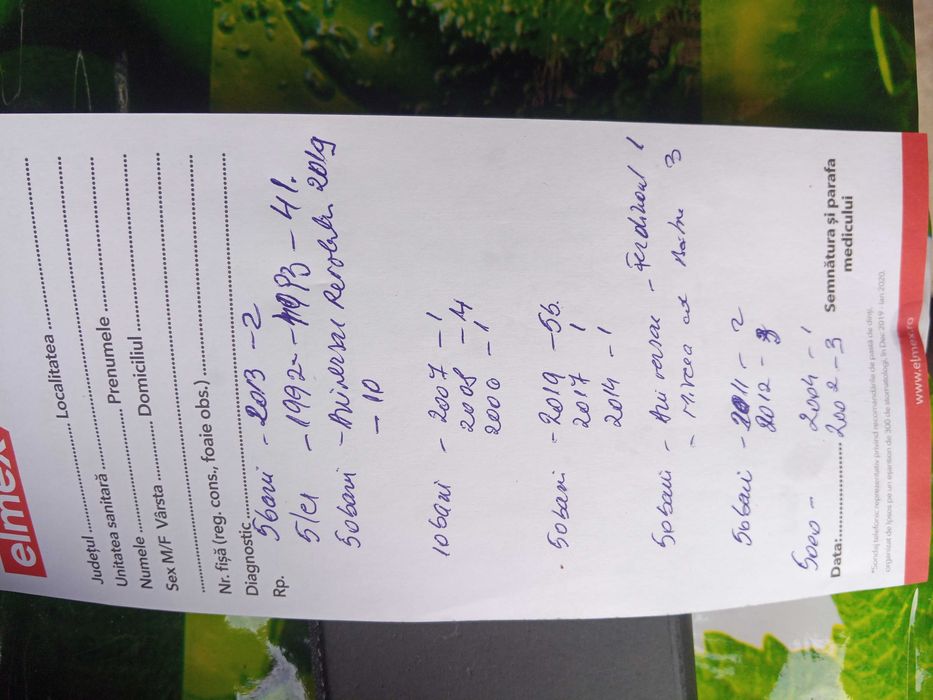 elmex
Județul........ Localitatea ........
Unitatea sanitară ........
Numele ........ Prenumele ........
Sex M/F Vârsta ........ Domiciliul ........
........
Nr. fișă (reg. cons., foaie obs.) ........
Diagnostic ........
Rp.
5 bani - 2013 - 2
5 lei - 1992 - 1993 - 4 l.
50 bani - Aniversar Revolutiei 2019
- 10
10 bani - 2007 - 1
2008 - 14
2000 - 1
50 bani - 2019 - 56.
2017 1
2014 - 1
50 bani - Aniversar - Ferdinand 1
- Mircea cel 3
50 bani - 2011 - 2
2012 - 3
5000 - 2004 - 1
2002 - 3
Data:........ Semnătura și parafa
medicului
*Sondaj telefonic reprezentativ privind recomandările de pastă de dinți,
organizat de Ipsos pe un eșantion de 300 de stomatologi, în Dec 2019 - Ian 2020.
www.elmex.ro